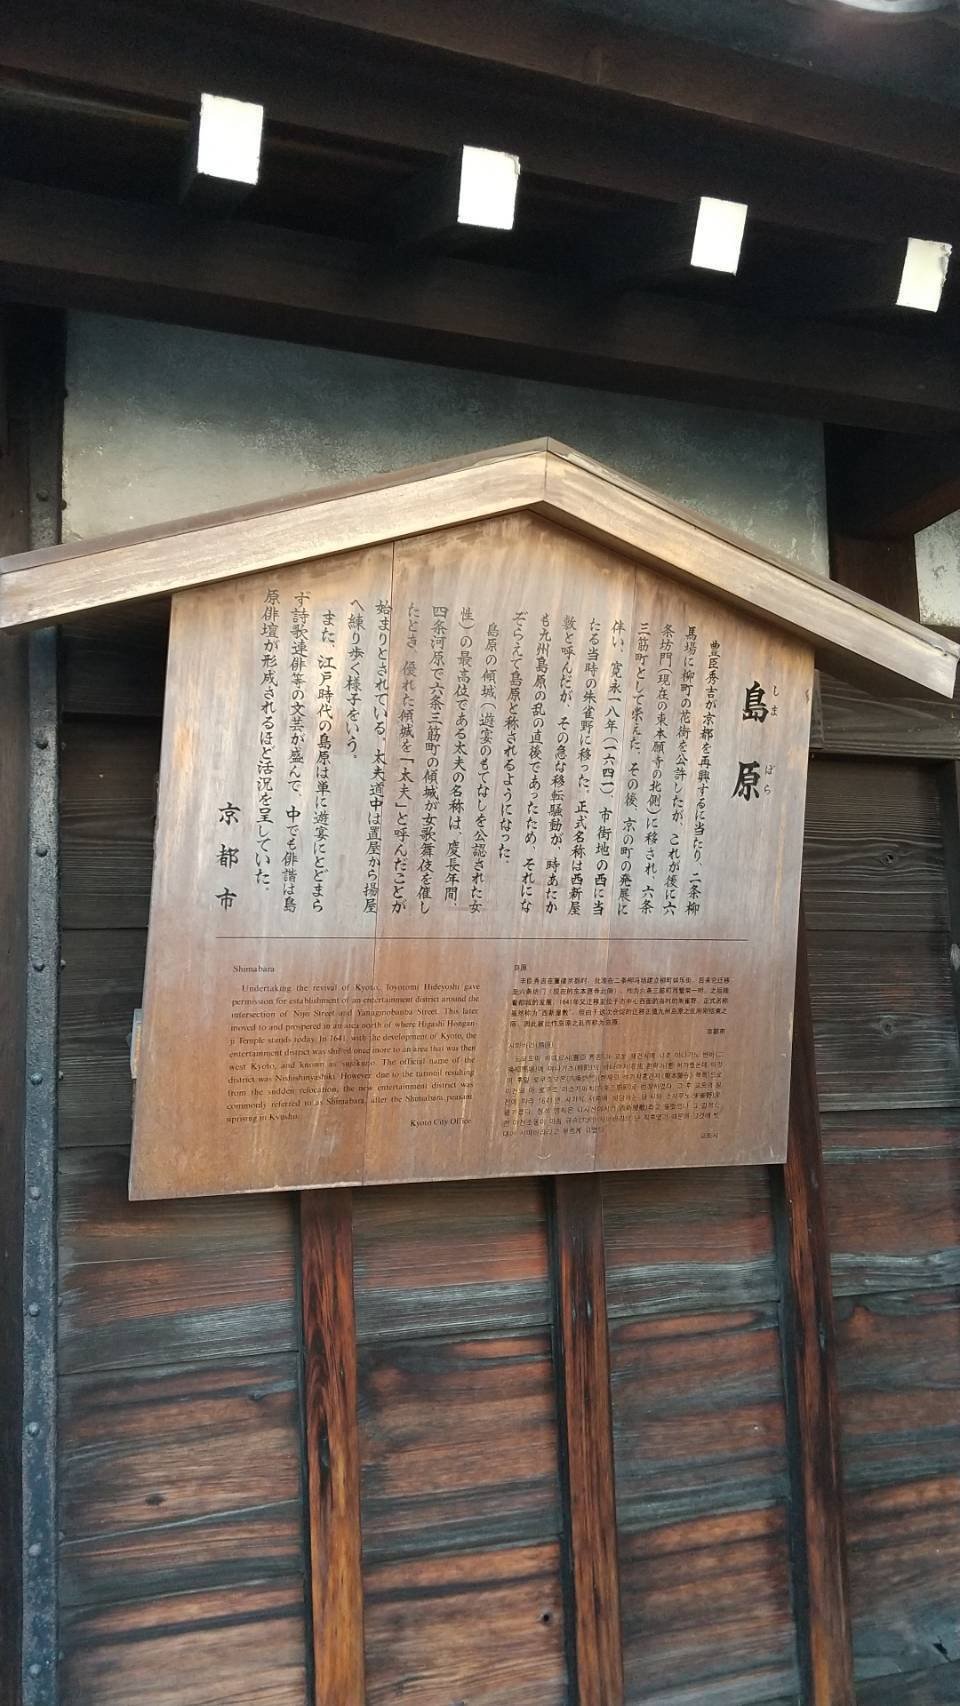 島原
しまばら
豊臣秀吉が京都を再興するに当たり、二条柳
馬場に柳町の花街を公許したが、これが後に六
条坊門（現在の東本願寺の北側）に移され、六条
三筋町として栄えた。その後、京の町の発展に
伴い、寛永一八年（一六四一）、市街地の西に当
たる当時の朱雀野に移った。正式名称は西新屋
敷と呼んだが、その急な移転騒動が、時あたか
も九州島原の乱の直後であったため、それにな
ぞらえて島原と称されるようになった。
島原の傾城（遊宴のもてなしを公認された女
性）の最高位である太夫の名称は、慶長年間、
四条河原で六条三筋町の傾城が女歌舞伎を催し
たとき、優れた傾城を「太夫」と呼んだことが
始まりとされている。太夫道中は置屋から揚屋
へ練り歩く様子をいう。
また、江戸時代の島原は単に遊宴にとどまら
ず詩歌連俳等の文芸が盛んで、中でも俳諧は島
原俳壇が形成されるほど活況を呈していた。
京都市
Shimabara
Undertaking the revival of Kyoto, Toyotomi Hideyoshi gave
permission for establishment of an entertainment district around the
intersection of Nijo Street and Yanaginobanba Street. This later
moved to and prospered in an area north of where Higashi Hongan-
ji Temple stands today. In 1641, with the development of Kyoto, the
entertainment district was shifted once more to an area that was then
west Kyoto, and known as Sujakuno. The official name of the
district was Nishishinyashiki. However, due to the turmoil resulting
from the sudden relocation, the new entertainment district was
commonly referred to as Shimabara, after the Shimabara peasant
uprising in Kyushu.
Kyoto City Office
岛原
京都市
교토시